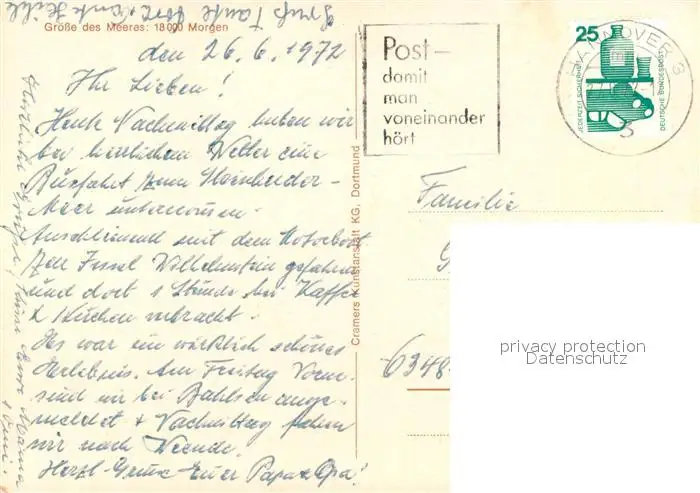 Gruß Tante
Größe des Meeres: 18000 Morgen
den 26.6.1972
Ihr Lieben!
Heute Nachmittag haben wir
bei herrlichem Wetter eine
Busfahrt zum Steinhuder-
Meer unternommen.
Anschliessend mit dem Motorboot
zur Insel Wilhelmstein gefahren
und dort 1 Stunde bei Kaffee
& Kuchen verbracht.
Es war ein wirklich schönes
Erlebnis. Am Freitag Vorm.
sind wir bei Bahlsen ange-
meldet & Nachmittag fahren
wir nach Weende.
Herzl. Grüße Euer Papa & Opa!
Herzliche Grüße Eure Mama
& Omi.
Cramers Kunstanstalt KG. Dortmund
Post-
damit
man
voneinander
hört
25
JEDERZEIT SICHERHEIT
DEUTSCHE BUNDESPOST
HANNOVER 3
3
Familie
6348
privacy protection
Datenschutz